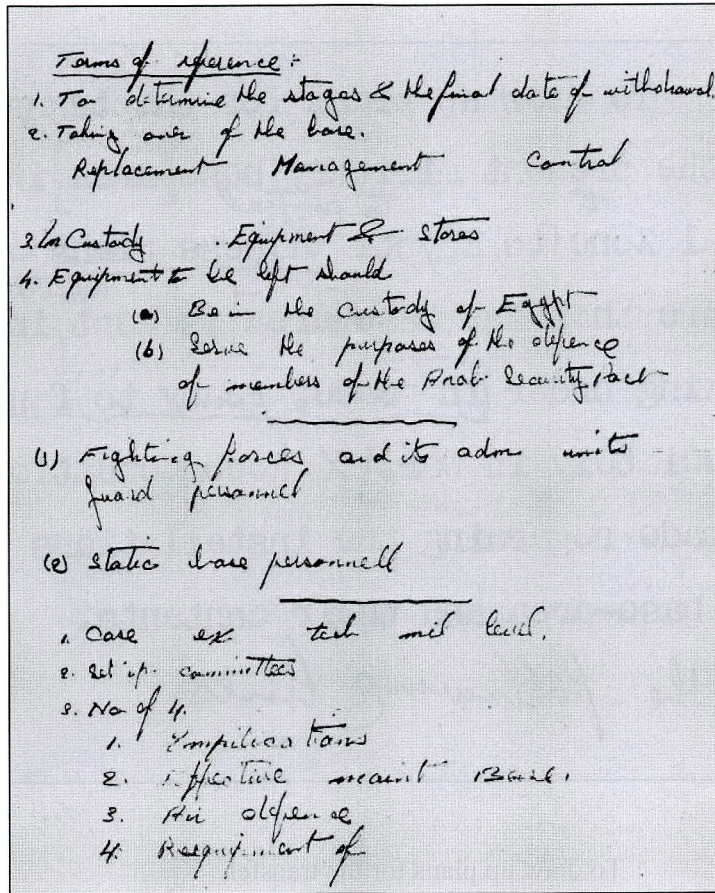 Terms of reference :-
1. To determine the stages & the final date of withdrawal.
2. Taking over of the base.
Replacement Management Control
3. In Custody . Equipment & Stores
4. Equipment to be left should
(a) Be in the Custody of Egypt
(b) Serve the purposes of the defence
of members of the Arab Security Pact
(1) Fighting forces and its adm units
guard personnel
(2) Static base personnell
1. Case ex tech mil level.
2. Set up committees
3. No of 4.
1. Implications
2. Effective maint Base.
3. Air defence
4. Reequipment of